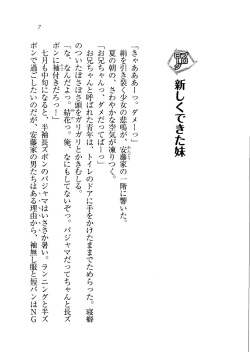 7
プロローグ
新しくできた妹
「きゃあああーっ。ダメーっ」
絹を引き裂く少女の悲鳴が、安藤家の一階に響いた。
夏の朝の、さわやかな空気が凍りつく。
「お兄ちゃんっ、ダメだってばーっ」
お兄ちゃんと呼ばれた青年は、トイレのドアに手をかけたままでためらった。寝癖
のついたぼさぼさ頭をガリガリとかきむしる。
「な、なんだよっ。結花っ。俺、なにもしてないぞっ。パジャマだってちゃんと長ズ
ボンに袖付きだろっ！」
七月も中旬になると、半袖長ズボンのパジャマはいささか暑い。ランニングと半ズ
ボンで過ごしたいのだが、安藤家の男たちはある理由から、袖無し服と短パンはNG